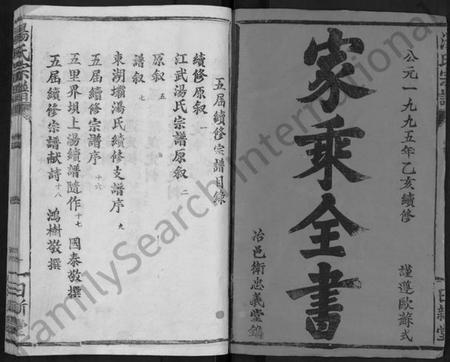 公元一九九五年乙亥續修
謹遵歐蘇式
家乘全書
冶邑衛忠義堂鐫
日新堂
五屆續修宗譜目錄
續修原叙 一
江武湯氏宗譜原叙 二
原叙 五
譜叙 七
東湖壪湯氏續修支譜序 九
五屆續修宗譜序 十六
五里界垻上湯續譜隨作 十七 國泰敬撰
五屆續修宗譜献詩 十八 鴻樹敬撰
湯氏宗譜
日新
FamilySearch International